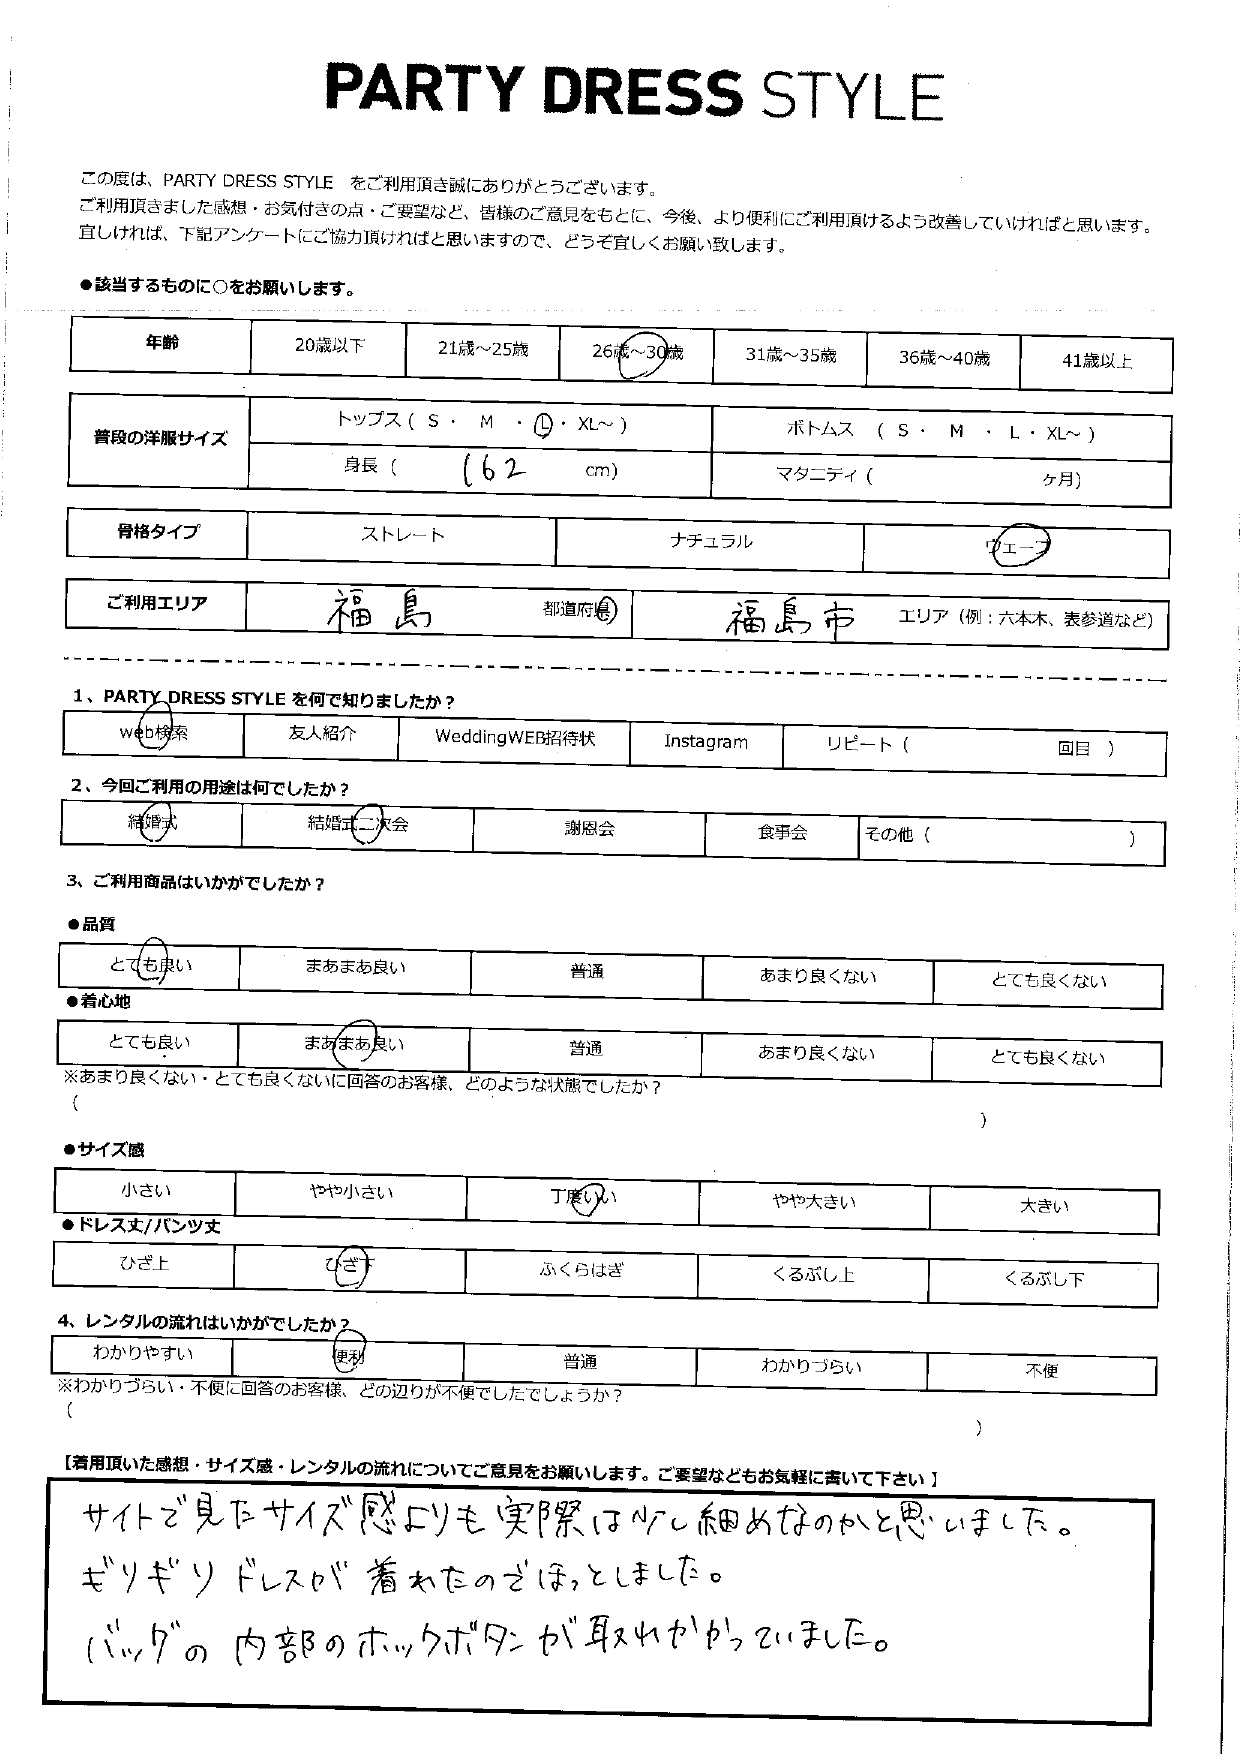 PARTY DRESS STYLE
この度は、PARTY DRESS STYLE をご利用頂き誠にありがとうございます。
ご利用頂きました感想・お気付きの点・ご要望など、皆様のご意見をもとに、今後、より便利にご利用頂けるよう改善していければと思います。
宜しければ、下記アンケートにご協力頂ければと思いますので、どうぞ宜しくお願い致します。
●該当するものに○をお願いします。
年齢 20歳以下 21歳～25歳 26歳～30歳 31歳～35歳 36歳～40歳 41歳以上
普段の洋服サイズ トップス ( S ・ M ・ L ・ XL～ ) ボトムス ( S ・ M ・ L ・ XL～ )
身長 ( 162 cm) マタニティ ( ヶ月)
骨格タイプ ストレート ナチュラル ウェーブ
ご利用エリア 福島 都道府県 福島市 エリア（例：六本木、表参道など）
1、PARTY DRESS STYLE を何で知りましたか？
web検索 友人紹介 WeddingWEB招待状 Instagram リピート（ 回目 ）
2、今回ご利用の用途は何でしたか？
結婚式 結婚式二次会 謝恩会 食事会 その他（ ）
3、ご利用商品はいかがでしたか？
●品質
とても良い まあまあ良い 普通 あまり良くない とても良くない
●着心地
とても良い まあまあ良い 普通 あまり良くない とても良くない
※あまり良くない・とても良くないに回答のお客様、どのような状態でしたか？
（ ）
●サイズ感
小さい やや小さい 丁度いい やや大きい 大きい
●ドレス丈/パンツ丈
ひざ上 ひざ下 ふくらはぎ くるぶし上 くるぶし下
4、レンタルの流れはいかがでしたか？
わかりやすい 便利 普通 わかりづらい 不便
※わかりづらい・不便に回答のお客様、どの辺りが不便でしたでしょうか？
（ ）
【着用頂いた感想・サイズ感・レンタルの流れについてご意見をお願いします。ご要望などもお気軽に書いて下さい 】
サイトで見たサイズ感よりも実際は少し細めなのかと思いました。
ギリギリ ドレスが 着れたのでほっとしました。
バッグの 内部のホックボタンが取れかかっていました。